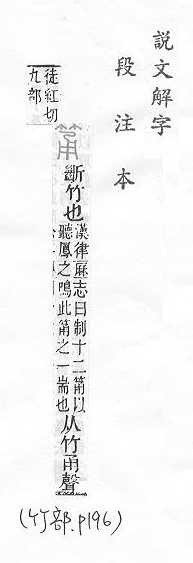 說文解字
段注本
筩
斷竹也
漢律厤志曰制十二筩以
聽鳳之鳴此筩之一耑也
从竹甬聲
徒紅切
九部
(竹部.p196)